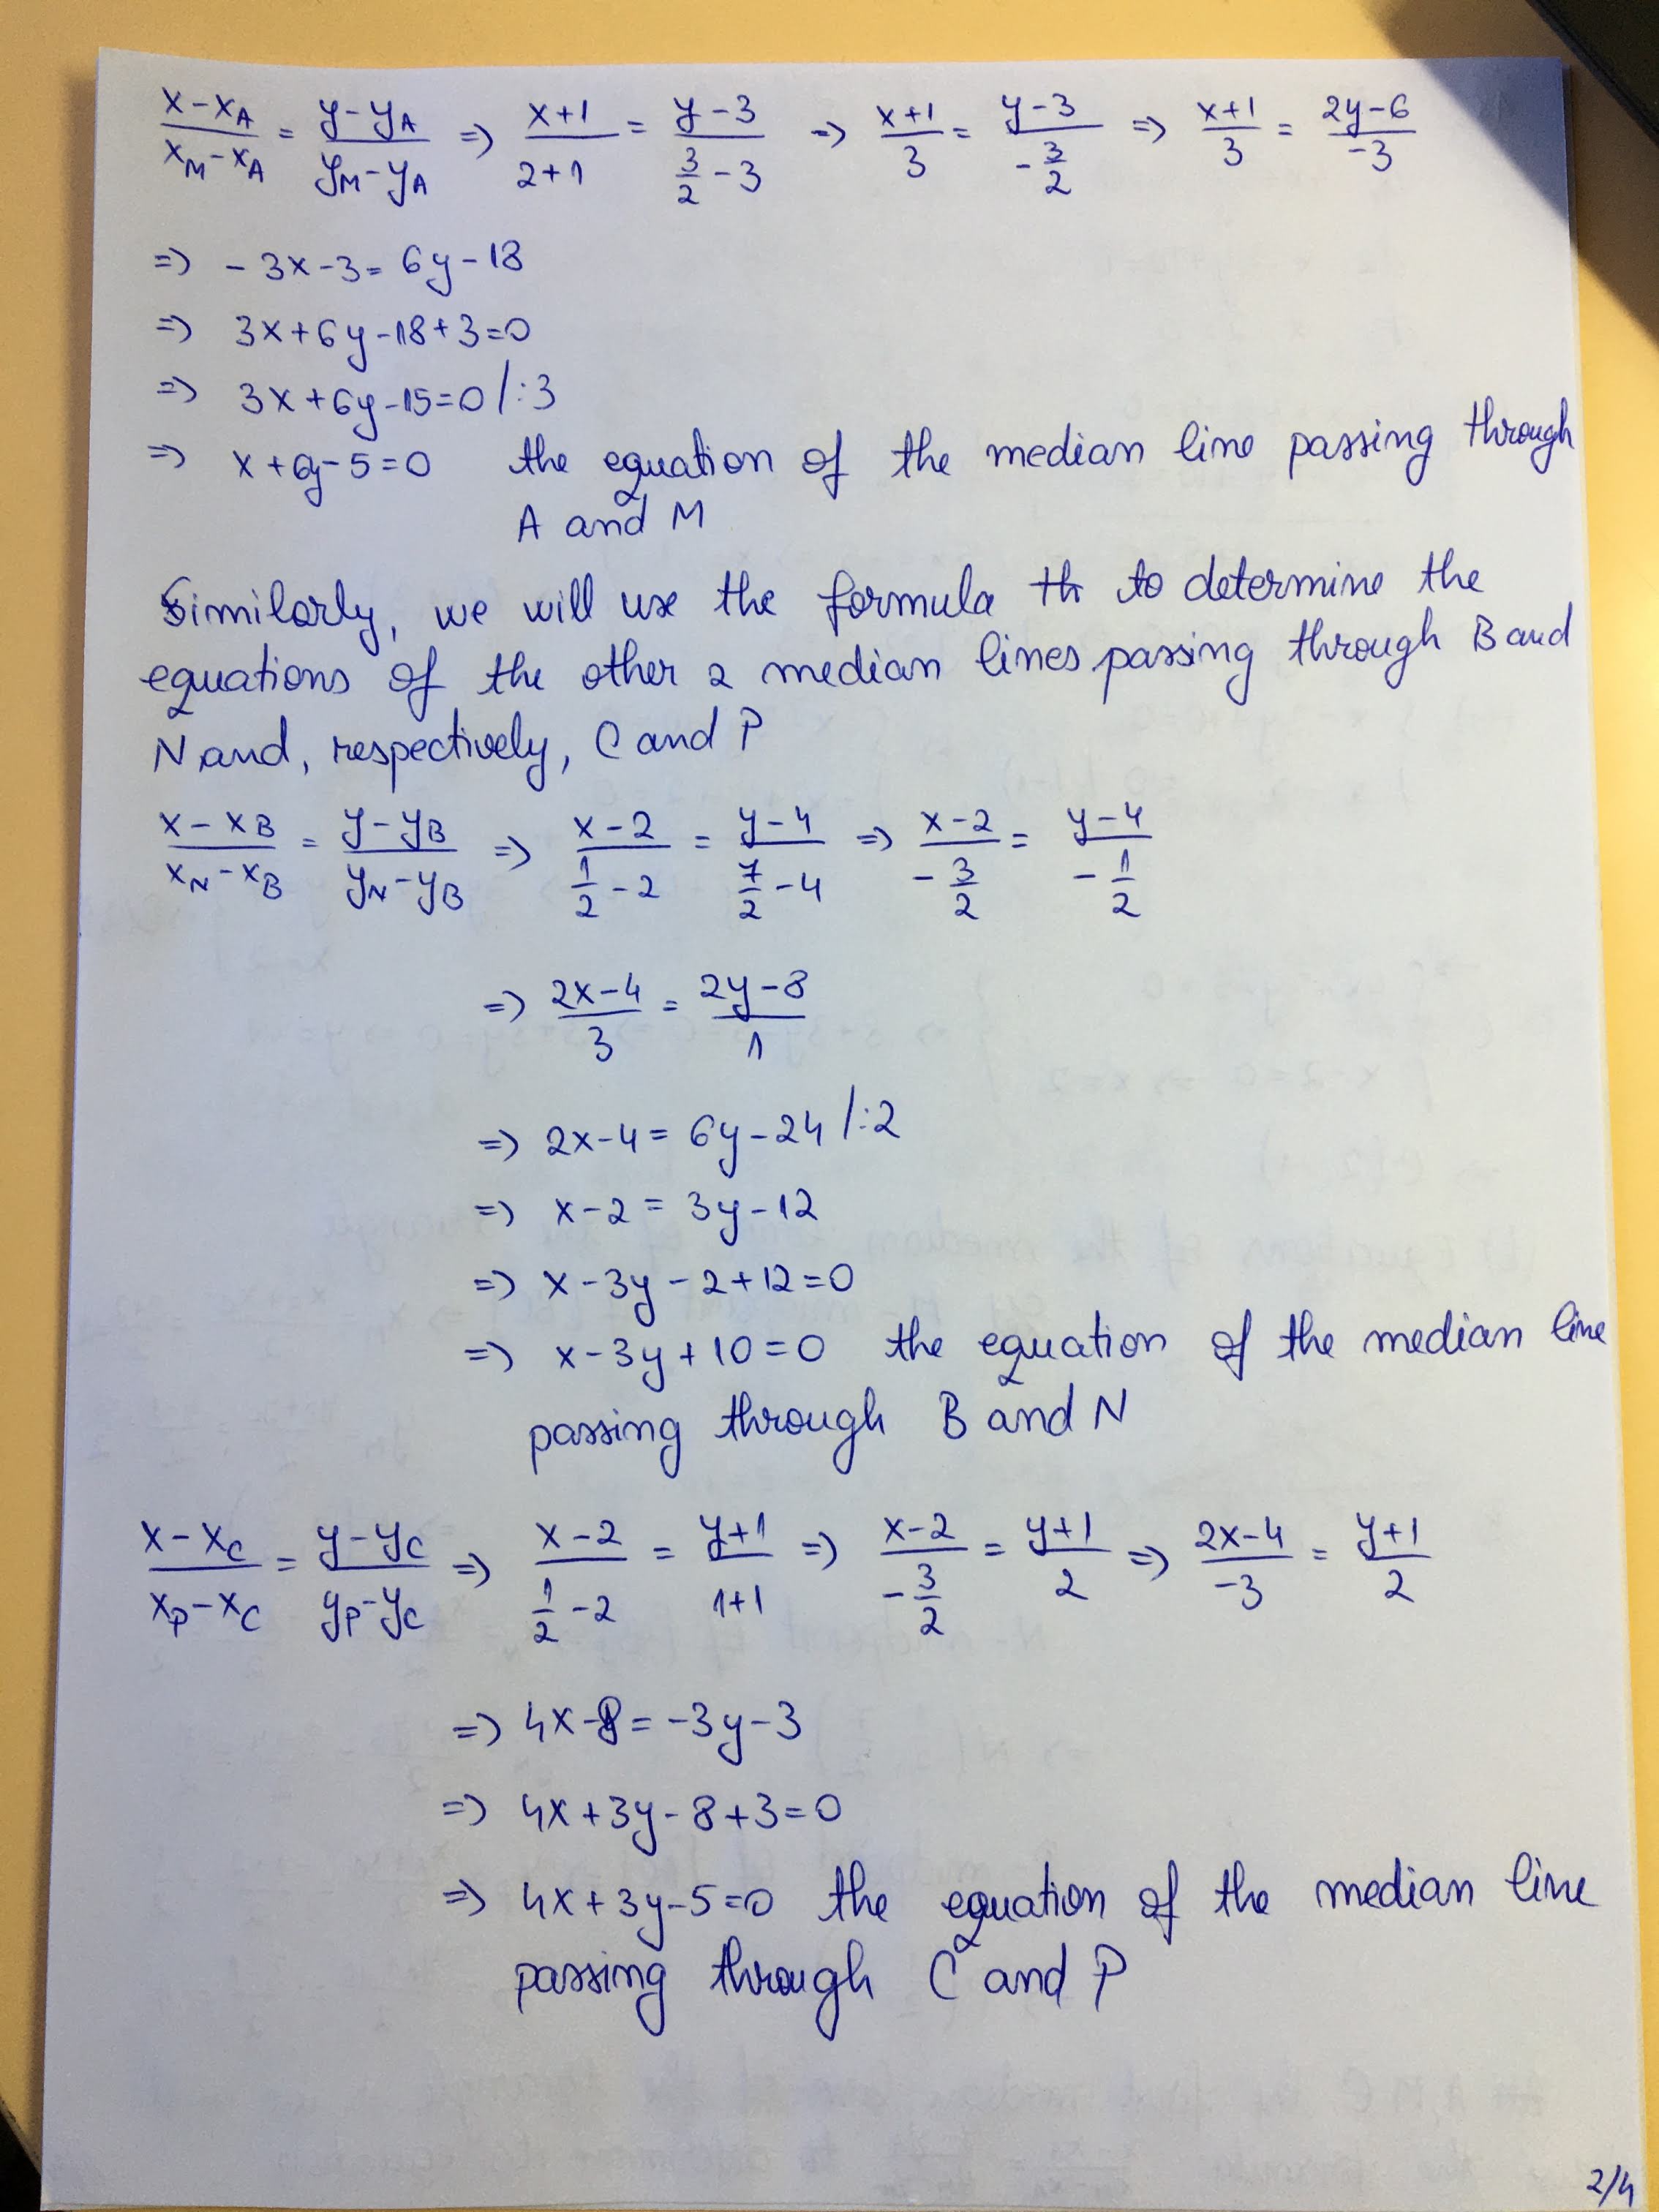 (x-x_A)/(x_M-x_A) = (y-y_A)/(y_M-y_A) => (x+1)/(2+1) = (y-3)/(3/2-3) => (x+1)/3 = (y-3)/(-3/2) => (x+1)/3 = (2y-6)/(-3)
=> -3x-3=6y-18
=> 3x+6y-18+3=0
=> 3x+6y-15=0 /:3
=> x+6y-5=0 the equation of the median line passing through
A and M
Similarly, we will use the formula th to determine the
equations of the other 2 median lines passing through B and
N and, respectively, C and P
(x-x_B)/(x_N-x_B) = (y-y_B)/(y_N-y_B) => (x-2)/(1/2-2) = (y-4)/(7/2-4) => (x-2)/(-3/2) = (y-4)/(-1/2)
=> (2x-4)/3 = (2y-8)/1
=> 2x-4=6y-24 /:2
=> x-2=3y-12
=> x-3y-2+12=0
=> x-3y+10=0 the equation of the median line
passing through B and N
(x-x_C)/(x_P-x_C) = (y-y_C)/(y_P-y_C) => (x-2)/(1/2-2) = (y+1)/(1+1) => (x-2)/(-3/2) = (y+1)/2 => (2x-4)/(-3) = (y+1)/2
=> 4x-8=-3y-3
=> 4x+3y-8+3=0
=> 4x+3y-5=0 the equation of the median line
passing through C and P
2/4